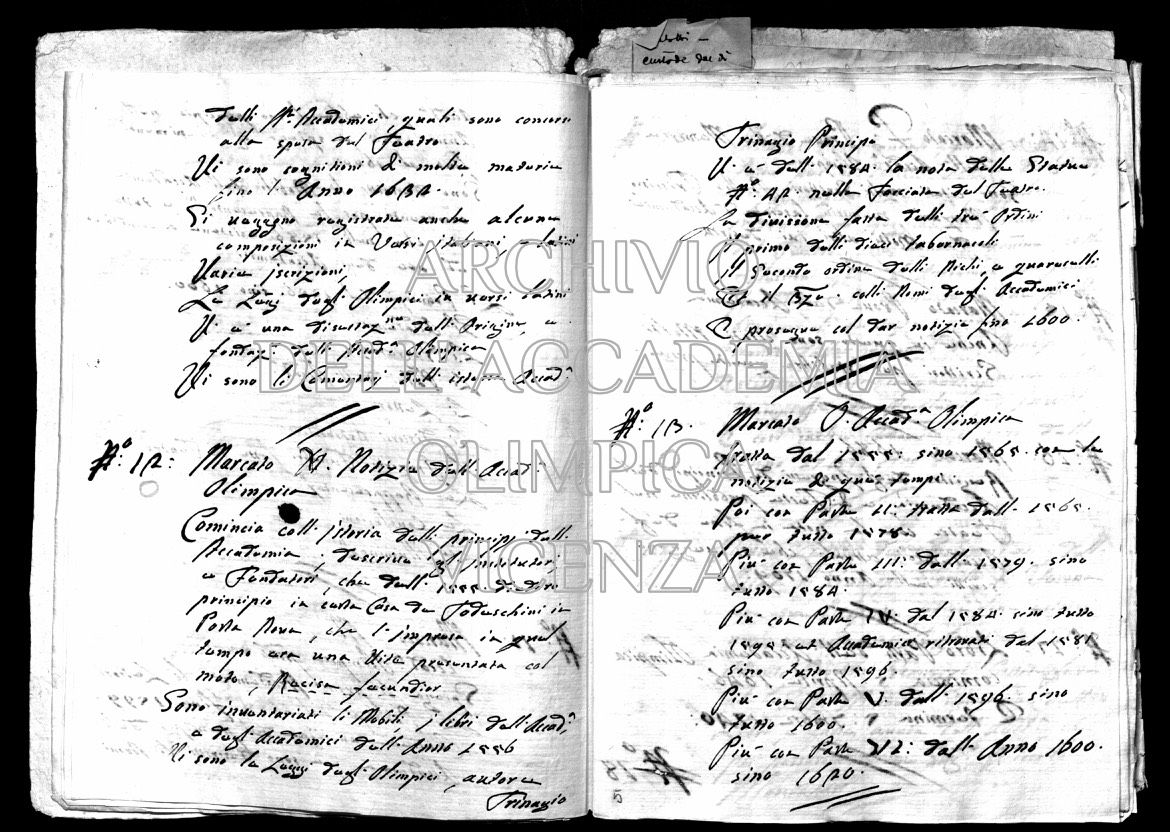 custode dai di
dalli Sig.ri Accademici, quali sono concorsi
alla spesa del Teatro
Vi sono cognitioni di molte materie
sino l'Anno 1634.
Si vegono registrate anche alcune
composizioni in Versi italiani, e latini
Varie iscrizioni
Le Leggi degl'Olimpici in versi latini
V'è una dissertaz.ne dell'Origine, e
fondaz. dell'Accad.a Olimpica
Vi sono li Comentarj dell'istessa Accad.a
N.o 12: Marcato XI. Notizie dell'Accad.a
Olimpica
Comincia coll'istoria delli principj dell'
Accademia, descrive gl'Institutori,
e Fondatori, che dell'1555 diedero
principio in certa Casa da Todeschini in
Porta Nova, che l'impresa in quel
tempo era una Vite presentata col
moto, Recisa fecundior
Sono inventariati li Mobili, i libri dell'Accad.a,
e degl'Accademici dell'Anno 1556
Vi sono le Leggi degl'Olimpici, autore
Trinagio
Trinagio Principe
V'è dell'1584. la nota delle Statue
N.o 42 nella Facciata del Teatro.
La divisione fatta delli tre Ordini
il primo delli dieci tabernacoli
il Secondo ordine delli Nichi, e quareselli
Et il 3zo. colli Nomi degl'Accademici
E prosegue col dar notizie sino 1600.
N.o 13. Marcato O. Accad.a Olimpica
tratta dal 1555: sino 1565. con le
notizie di que' tempi
Poi con Parte II: tratta dell'1565.
per tutto 1578
Più con Parte III: dell'1579. sino
tutto 1584.
Più con Parte IV. dal 1584. sino tutto
1595 et Accademici ritrovati del 1581
sino tutto 1596
Più con Parte V. dell'1596. sino
tutto 1600.
Più con Parte VI: dell'Anno 1600.
sino 1620.
5
ARCHIVIO
DELL'ACCADEMIA
OLIMPICA
VICENZA